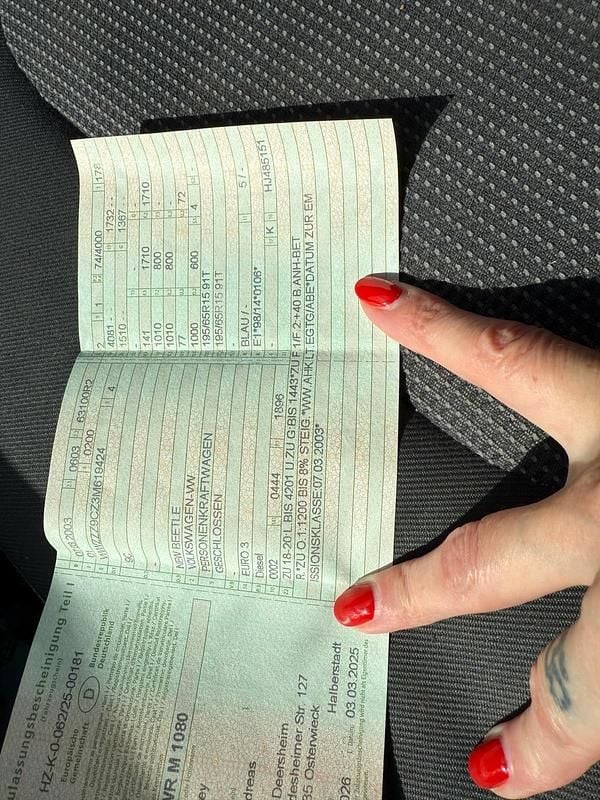 ulassungsbescheinigung Teil I
(Fahrzeugschein)
HZ-K-0-062/25-00181
Europäische Gemeinschaft
D
Bundesrepublik Deutschland
WR M 1080
ey
dreas
Deersheim
desheimer Str. 127
35 Osterwieck
Halberstadt
026
03.03.2025
2003 0603 63100R2
01 0200
ZZZ9CZ3M619424 4
9C
-
NEW BEETLE
VOLKSWAGEN-VW
PERSONENKRAFTWAGEN
GESCHLOSSEN
-
EURO 3
Diesel
0002 0444 1896
2 1 74/4000 178
4081 - - 1732 - -
1510 - - 1367 - -
- -
141 1710 1710
1010 800 -
1010 800 -
77 - 72
1000 600 4 -
195/65R15 91T
195/65R15 91T
-
BLAU / - 5 / -
E1*98/14*0106*
- K HJ485151
ZU 18-20:L.BIS 4201 U.ZU G:BIS 1443*ZU F.1/F.2:+40 B.ANH-BET
R.*ZU O.1:1200 BIS 8% STEIG.*WW.AHK LT.EGTG/ABE*DATUM ZUR EM
ISSIONSKLASSE:07.03.2003*